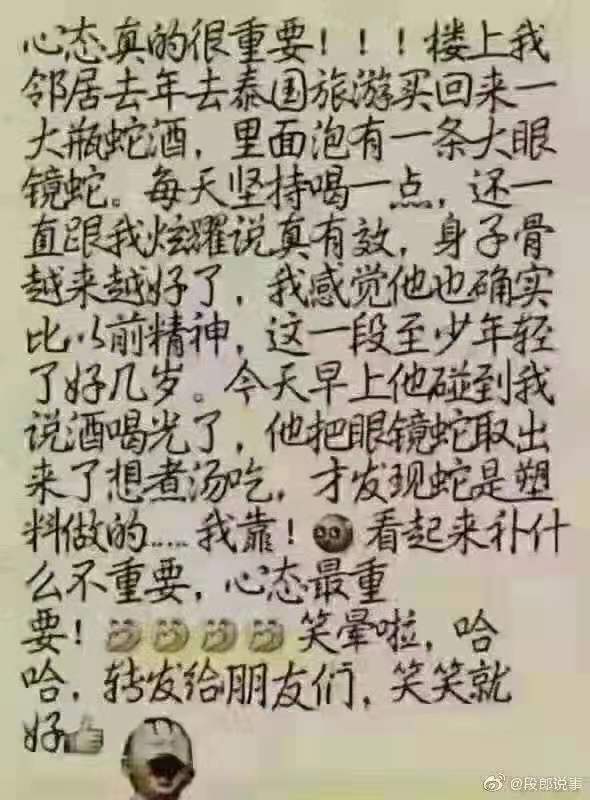 心态真的很重要！！！楼上我
邻居去年去泰国旅游买回来一
大瓶蛇酒，里面泡有一条大眼
镜蛇。每天坚持喝一点，还一
直跟我炫耀说真有效，身子骨
越来越好了，我感觉他也确实
比以前精神，这一段至少年轻
了好几岁。今天早上他碰到我
说酒喝光了，他把眼镜蛇取出
来了想煮汤吃，才发现蛇是塑
料做的.....我靠！看起来补什
么不重要，心态最重
要！笑晕啦，哈
哈，转发给朋友们，笑笑就
好
@段郎说事